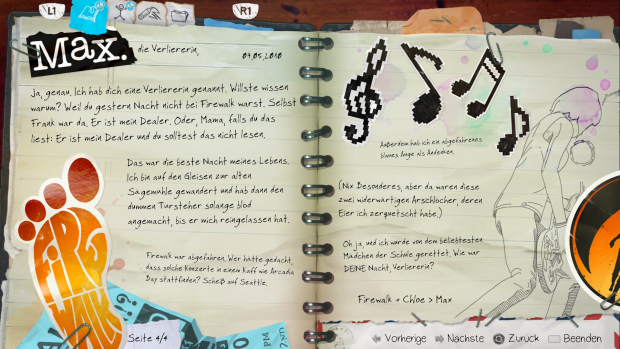 L1
R1
Max. die Verliererin,
04.05.2010
Ja, genau. Ich hab dich eine Verliererin genannt. Willste wissen
warum? Weil du gestern Nacht nicht bei Firewalk warst. Selbst
Frank war da. Er ist mein Dealer. Oder, Mama, falls du das
liest: Er ist mein Dealer und du solltest das nicht lesen.
Das war die beste Nacht meines Lebens.
Ich bin auf den Gleisen zur alten
Sägemühle gewandert und hab dann den
dummen Türsteher solange blöd
angemacht, bis er mich reingelassen hat.
Firewalk war abgefahren. Wer hätte gedacht,
dass solche Konzerte in einem Kaff wie Arcadia
Bay stattfinden? Scheiß auf Seattle.
FIRE
WALK
PM
Seite 4/4
Außerdem hab ich ein abgefahrenes
blaues Auge als Andenken.
(Nix Besonderes, aber da waren diese
zwei widerwärtigen Arschlöcher, deren
Eier ich zerquetscht habe.)
Oh ja, und ich wurde von dem beliebtesten
Mädchen der Schule gerettet. Wie war
DEINE Nacht, Verliererin?
Firewalk + Chloe > Max
Vorherige Nächste Zurück Beenden